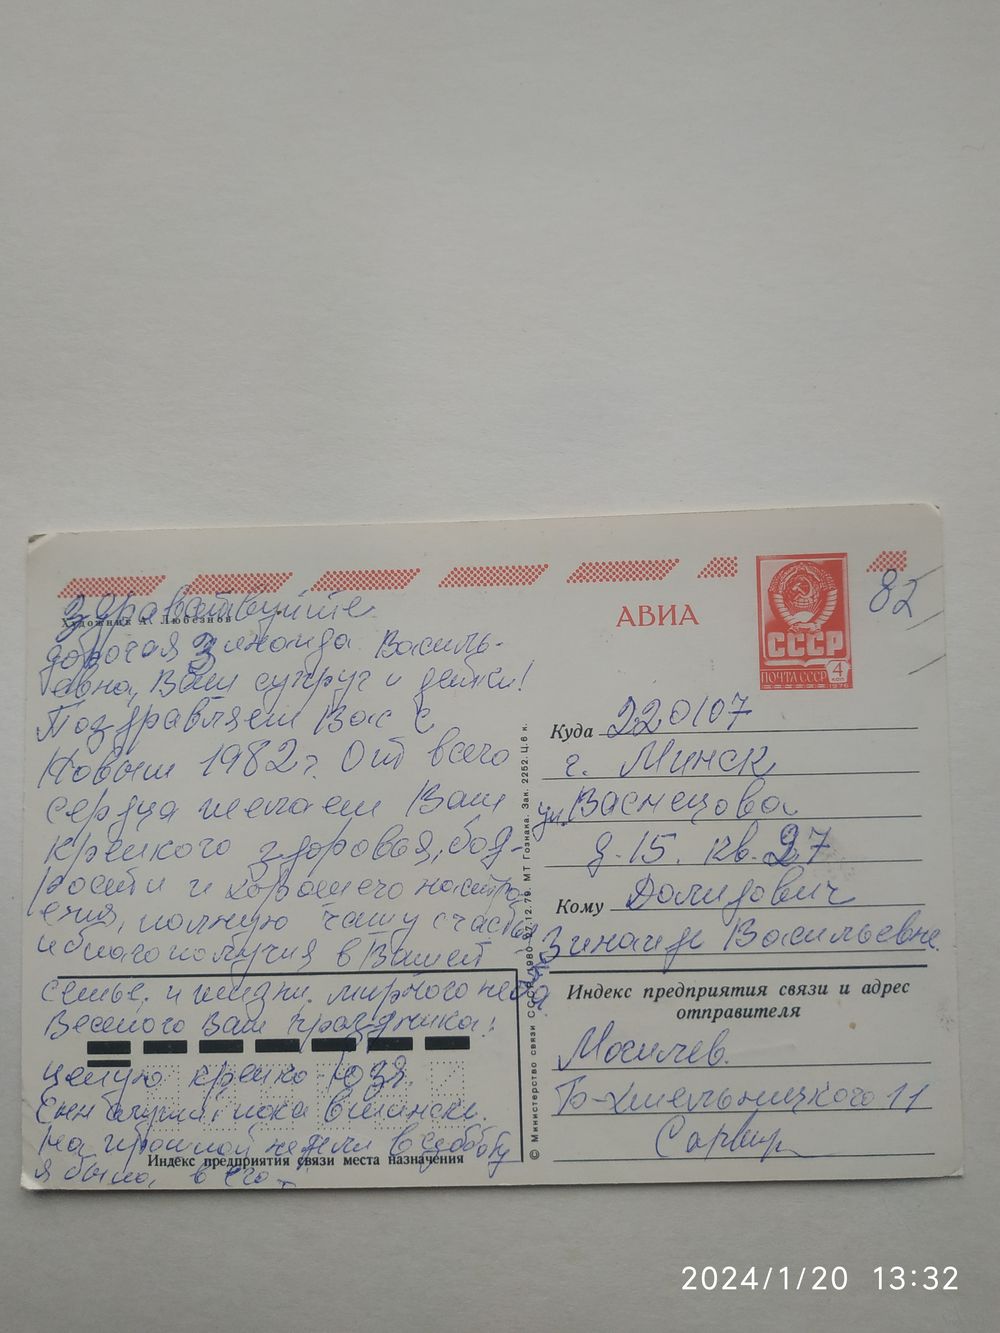 АВИА
СССР
ПОЧТА СССР 4 КОП
1976
82
Художник А. Любезнов
Здравствуйте
дорогая Зинаида Василь-
евна, Ваш супруг и детки!
Поздравляем Вас с
Новым 1982 г. От всего
сердца желаем Вам
крепкого здоровья, бод-
рости и хорошего настро
ения, полную чашу счастья
и благополучия в Вашей
семье, и жизни. мирного неба
Веселого Вам праздника!
целую крепко Юзя.
Сын служит пока в Минске.
На прошлой неделе в субботу
я была в его
Индекс предприятия связи места назначения
© Министерство связи СССР. 1980 27.12.79. МТ Гознака. Зак. 2252. Ц. 6 к.
Куда 220107
г. Минск
ул. Васнецова
д. 15. кв. 27
Кому Долидович
Зинаиде Васильевне.
Индекс предприятия связи и адрес
отправителя
Могилев.
Б-Хмельницкого 11